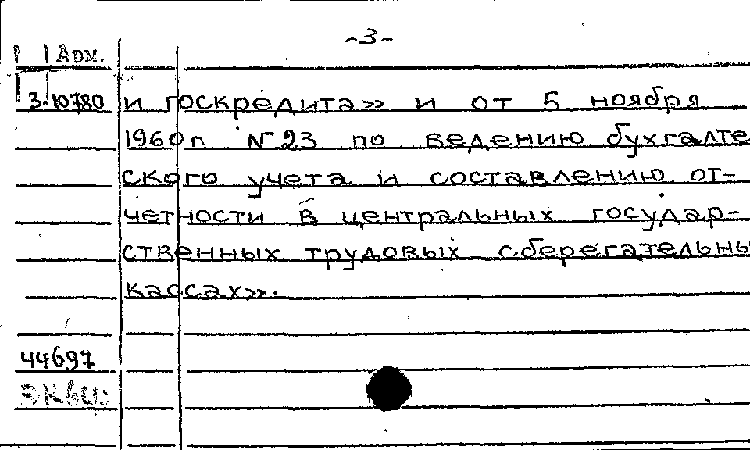 -3-
Арх.
3-10780 и госкредита» и от 5 ноября
1960г. №23 по ведению бухгалте
ского учета и составлению от-
четности в центральных государ-
ственных трудовых сберегательны
кассах».
44697